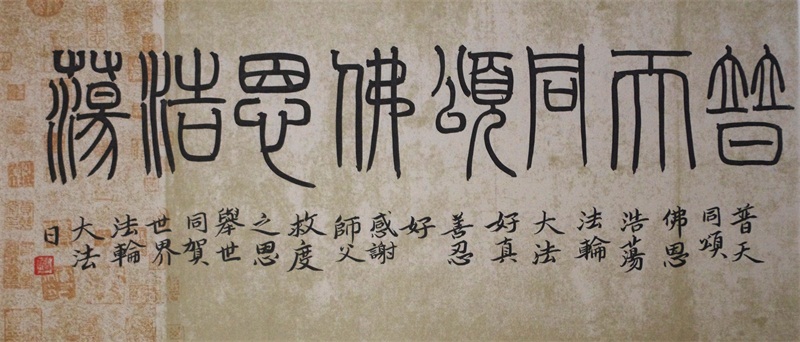 普天同頌佛恩浩蕩
普天
同頌
佛恩
浩蕩
法輪
大法
好真
善忍
好
感謝
師父
救度
之恩
舉世
同賀
世界
法輪
大法
日